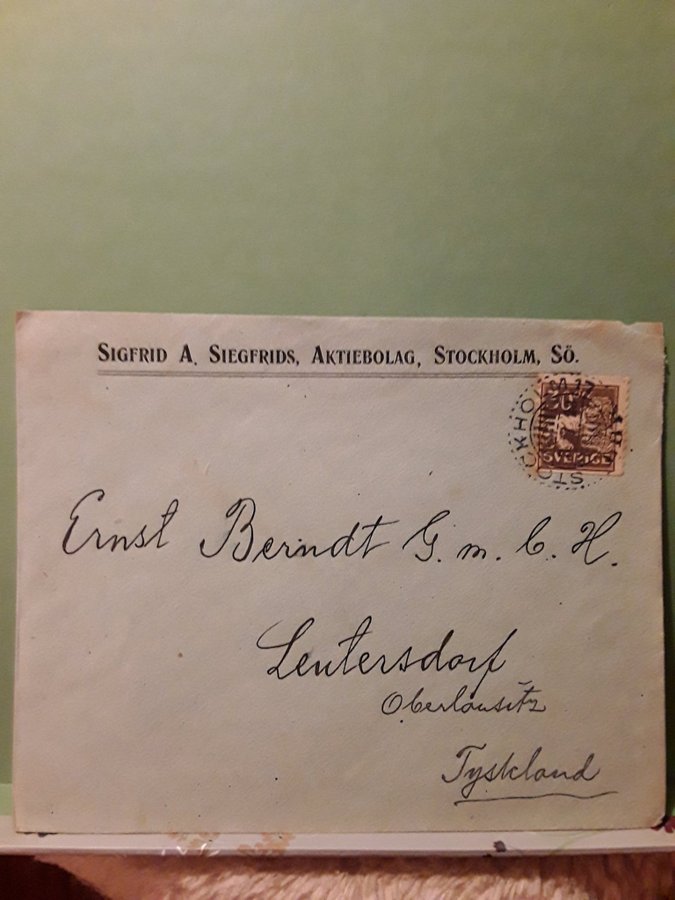 SIGFRID A. SIEGFRIDS, AKTIEBOLAG, STOCKHOLM, SÖ.
SVERIGE
Ernst Berndt G. m. b. H.
Leutersdorf
Oberlausitz
Tyskland